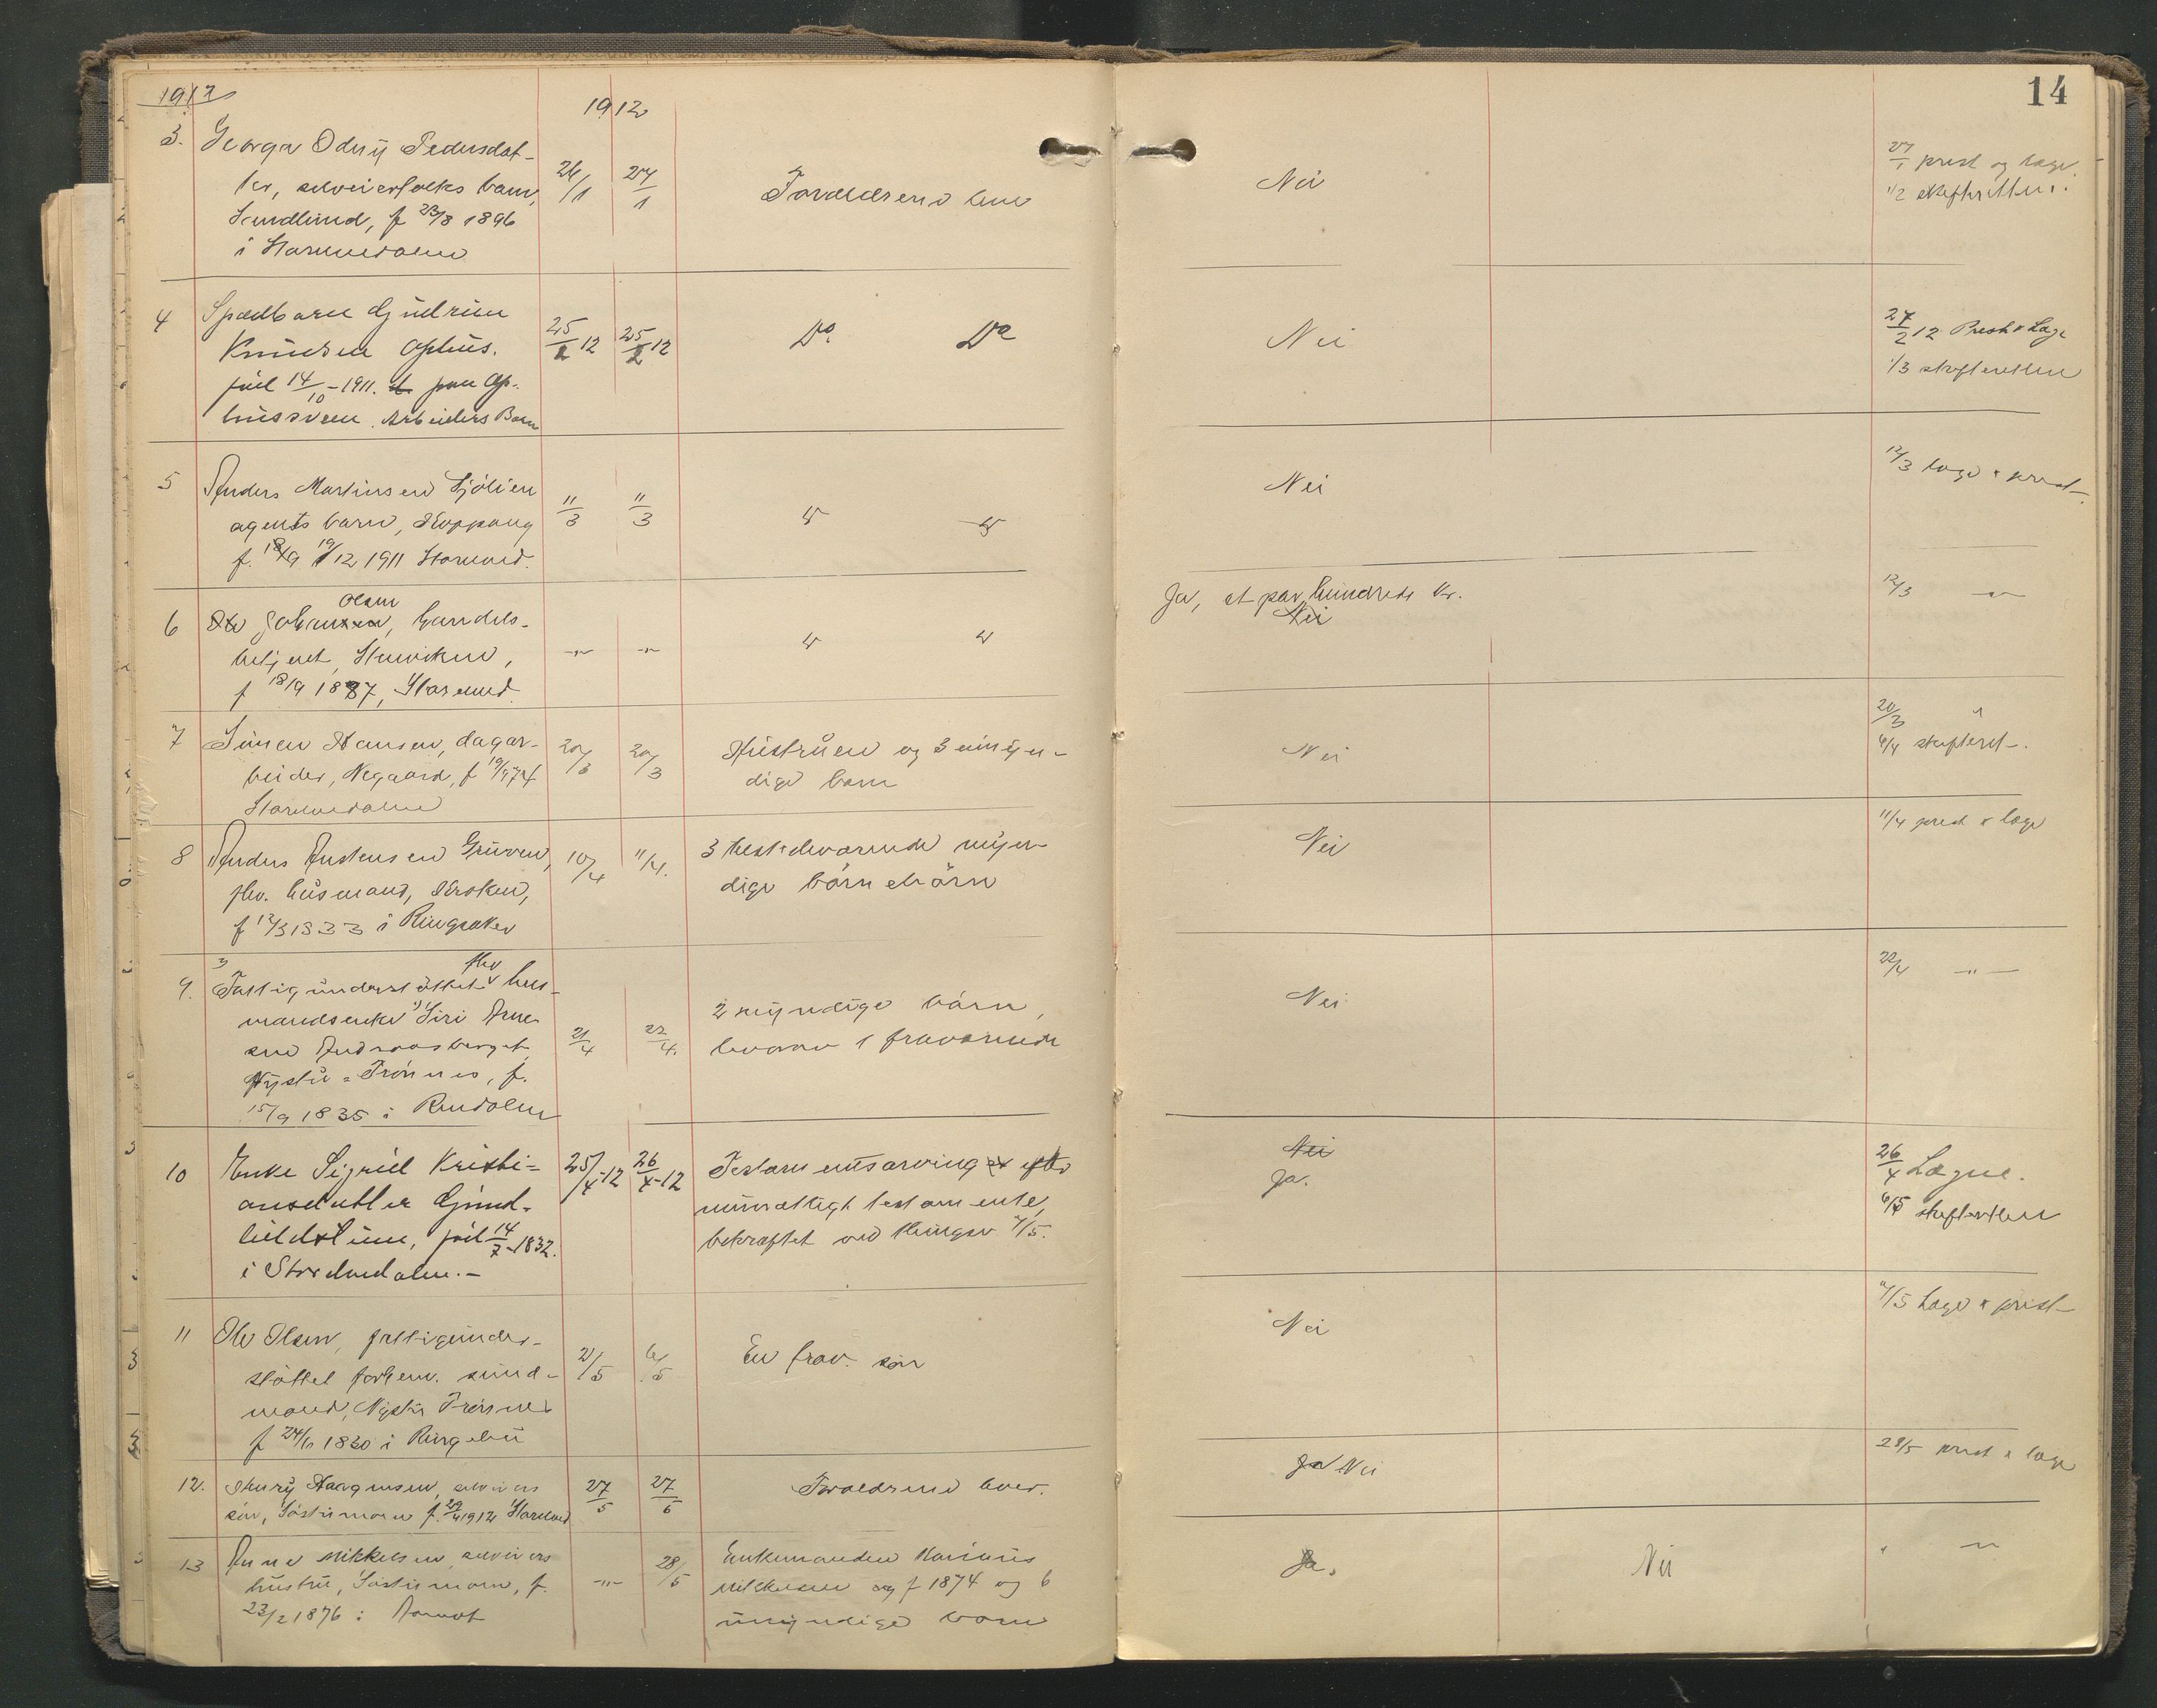 14
1912
1912
3. Georga Odny Pedersdat-
ter, selveierfolks barn,
Sundlund, f 23/8 1896
i Storelvedalen
26/1 27/1
Foræeldrene leve
Nei
27/1 prest og læge
1/2 skifteretten.
4 Spædbarn Gudrun
Knudsen Ophus.
föd 14/10 - 1911. paa Op-
hussveen. Arbeiders Barn
25/2 12 25/2 12
Do. Do
Nei
27/2 12 Prest & Læge
1/3 skifteretten
5 Anders Martinsen Sjölien
agents barn, Koppang
f. 19/12 1911 Storelved.
11/3 11/3
" "
Nei
12/3 læge & prest
6 Johan Olsen, handels-
betjent, Stuviken,
f 18/9 1887, Storelved.
-"- -"-
" "
Ja, et par hundrede kr.
Nei
12/3 -"-
7 Simen Hansen, dagar-
beider, Negaard, f 19/9 74
Storelvedalen
20/3 20/3
Hustruen og 3 umyn-
dige barn
Nei
20/3 "
9/4 skifteret.
8 Anders Austensen Gruven,
fhv. husmand, Kroken,
f 12/3 1833 i Ringsaker
10/4 11/4.
3 tilstedeværende myn-
dige börnebörn
Nei
11/4 prest & læge
9. Fattigunderstöttet fhv hus-
mandsenke Siri Arne-
sen Andreasberget
Nystu - Trönnes, f.
15/9 1835 i Rendalen
21/4 22/4.
2 myndige börn,
hvorav 1 fraværende
Nei
22/4 -"-
10 Enke Sigrid Kristi-
ansdatter Grund-
tildstuen, född 14/7 - 1832.
i Storelvedalen. -
25/4 -12 26/4 -12
Testamentsarving efter
mundtligt testamente,
bekræftet ved thinget 7/5.
Nei
Ja.
26/4 Lægne.
6/5 skifteretten
11 Ole Olsen, fattigunder-
stöttet forhenv. sund-
mand, Nystu Trönnes
f 24/6 1830 i Ringebu
2/5 6/5
En frav. sön
Nei
7/5 Læge & prest
12. Haagensen, selveiers
sön, Söstumoen f. 29/4 1912 Storelved
27/5 27/5
Foræeldrene lever.
Ja Nei
28/5 prest & læge
13 Anne Mikkelsen, selveiers
hustru, Söstumoen, f.
23/2 1876 i Aamot
-"- 28/5
Enkemanden Marinius
Mikkelsen f 1874 og 6
umyndige barn
Ja. Nei
" -"-